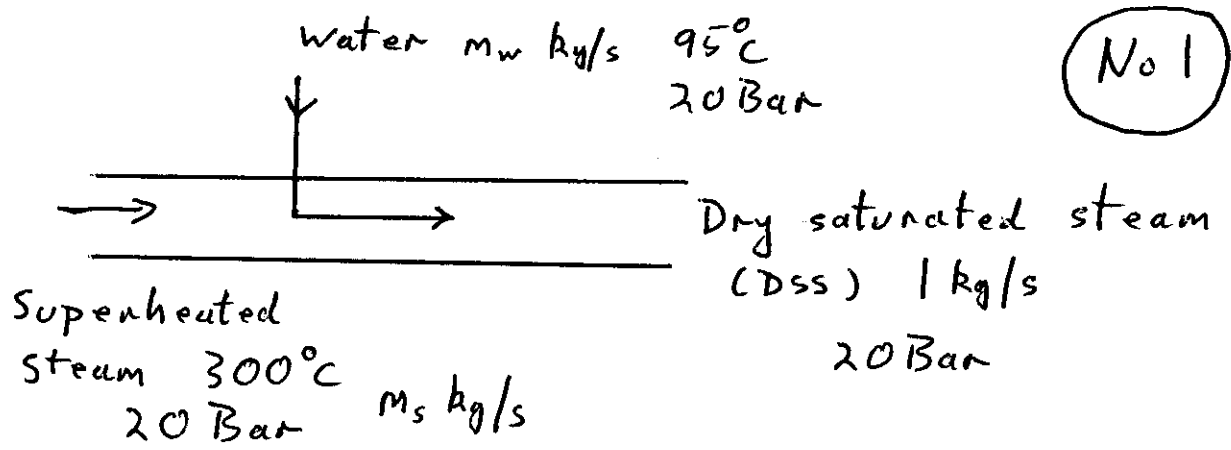 Water mw kg/s 95°C
20 Bar
No 1
Dry saturated steam
(DSS) 1 kg/s
20 Bar
Superheated
steam 300°C
20 Bar ms kg/s